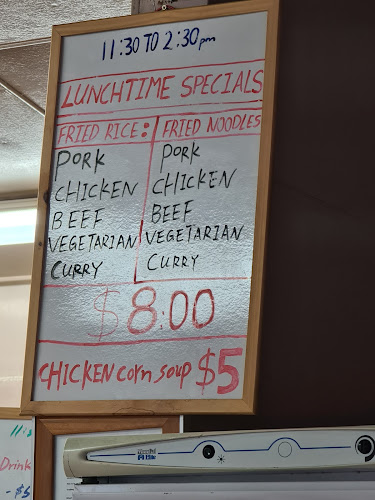 11:30 TO 2:30pm
LUNCHTIME SPECIALS
FRIED RICE: FRIED NOODLES
PORK PORK
CHICKEN CHICKEN
BEEF BEEF
VEGETARIAN VEGETARIAN
CURRY CURRY
$8:00
CHICKEN corn soup $5
Drink
- $5